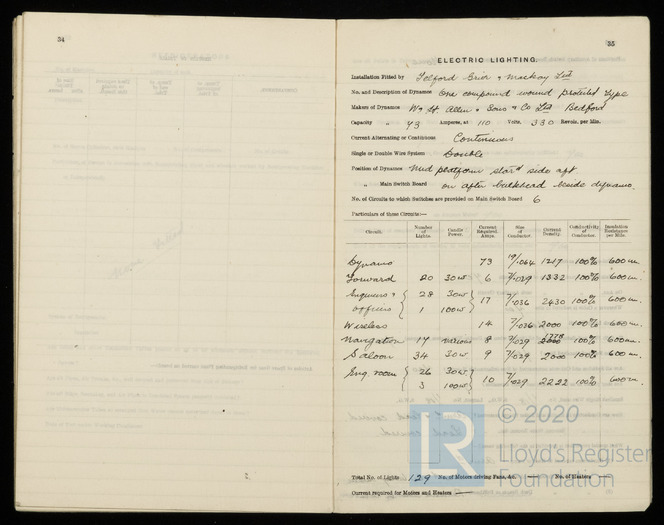 34
35
ELECTRIC LIGHTING.
Installation Fitted by Telford Grier & Mackay Ltd
No. and Description of Dynamos One compound wound protected type
Makers of Dynamos W. H. Allen & Sons & Co Ltd Bedford
Capacity " 73 Amperes, at 110 Volts, 330 Revols. per Min.
Current Alternating or Continuous Continuous
Single or Double Wire System Double
Position of Dynamos Mid platform starbd side aft.
" Main Switch Board on after bulkhead beside dynamo.
No. of Circuits to which Switches are provided on Main Switch Board 6
Particulars of these Circuits:—
Circuit. Number of Lights. Candle Power. Current Required. Amps. Size of Conductor. Current Density. Conductivity of Conductor. Insulation Resistance per Mile.
Dynamo 73 19/.064 1217 100% 600 m.
Forward 20 30w 6 7/.029 1332 100% 600 m.
Engineers & 28 30w 17 7/.036 2430 100% 600 m.
officers 1 100w
Wireless 14 7/.036 2000 100% 600 m.
Navigation 17 various 8 7/029 1778 100% 600m.
Saloon 34 30w 9 7/029 2000 100% 600 m.
Eng. room 26 30w 10 7/029 2222 100% 600m.
3 100w
Total No. of Lights 129 No. of Motors driving Fans, &c. — No. of Heaters
Current required for Motors and Heaters —
© 2020
LR
Lloyd's Register
Foundation